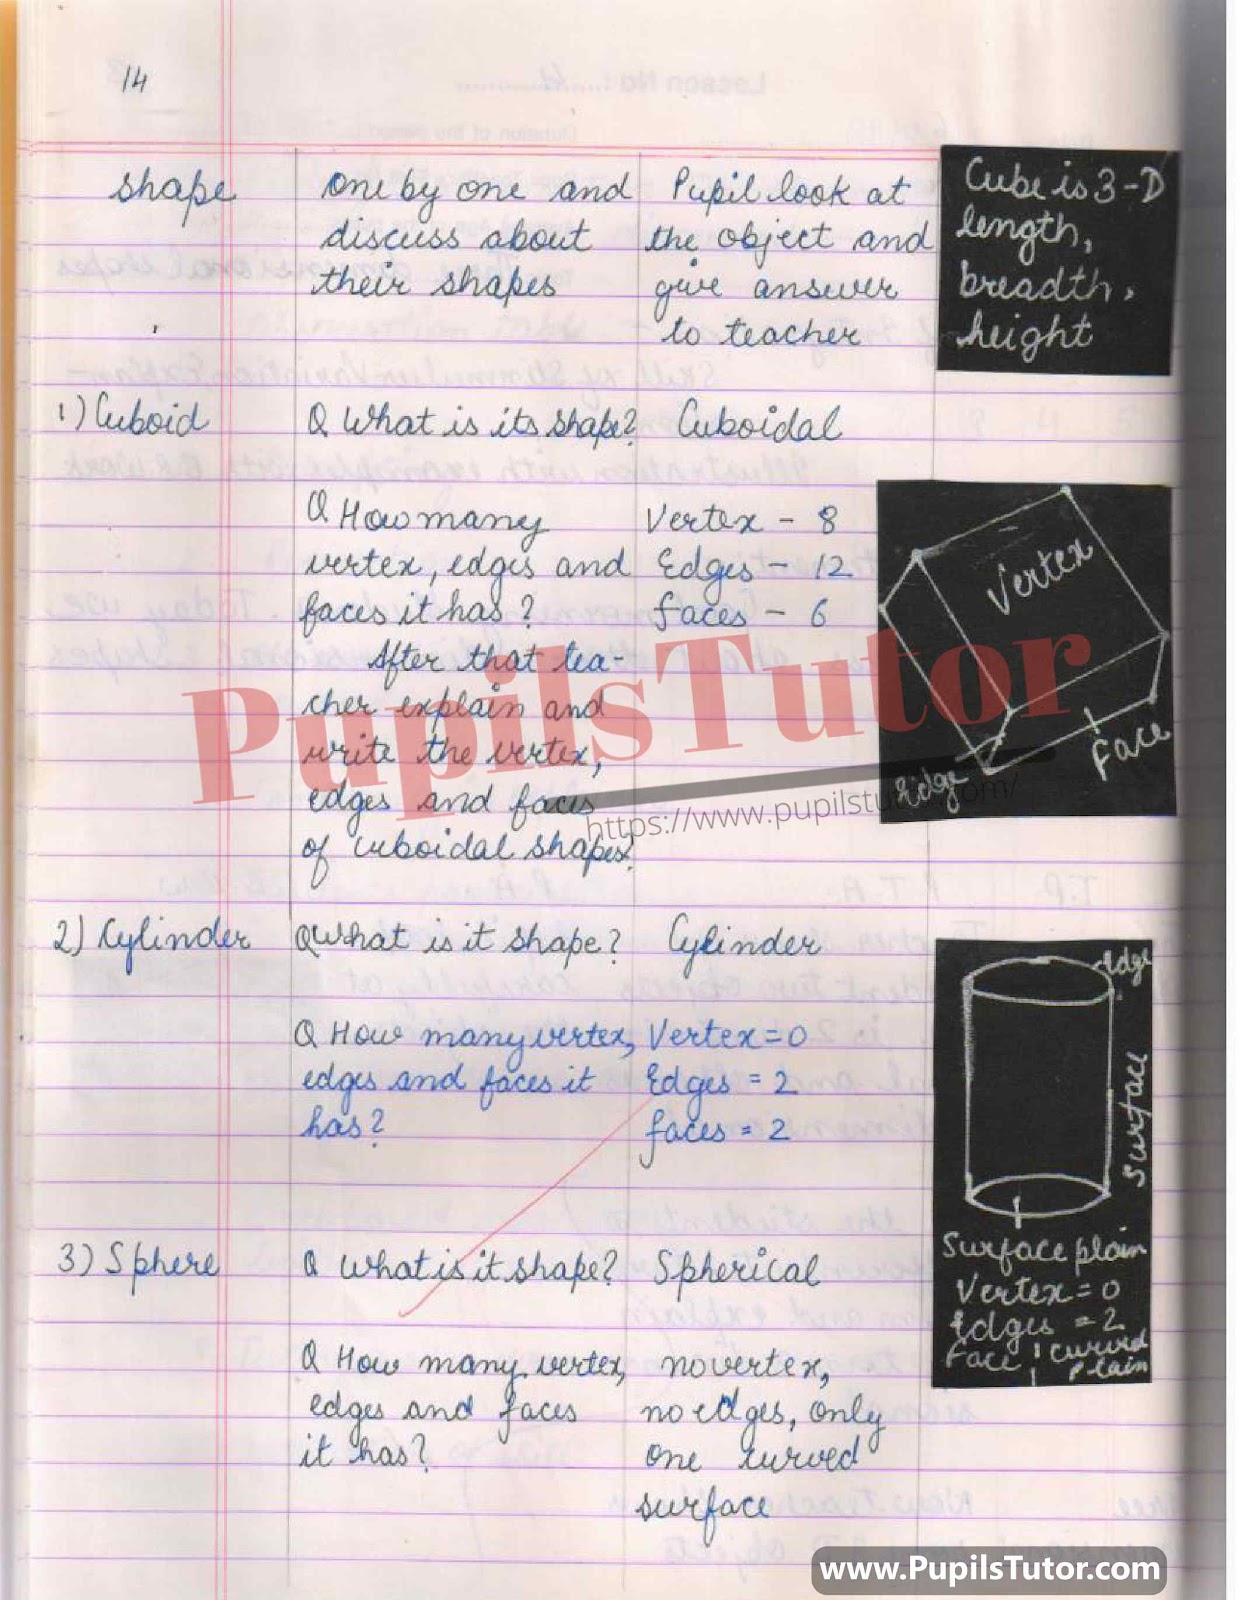 14
shape
one by one and
discuss about
their shapes
Pupil look at
the object and
give answer
to teacher
Cube is 3-D
length,
breadth,
height
1) Cuboid
Q What is its shape?
Cuboidal
Q How many
vertex, edges and
faces it has?
After that tea-
cher explain and
write the vertex,
edges and faces
of cuboidal shapes.
Vertex - 8
Edges - 12
faces - 6
Vertex
Face
Edge
PupilsTutor
https://www.pupilstutor.com/
2) Cylinder
Q What is it shape?
Cylinder
Q How many vertex,
edges and faces it
has?
Vertex = 0
Edges = 2
faces = 2
edge
Surface
Surface plain
Vertex = 0
Edges = 2
Face 1 curved
plain
3) Sphere
Q What is it shape?
Spherical
Q How many vertex,
edges and faces
it has?
no vertex,
no edges, only
one curved
surface
www.PupilsTutor.com